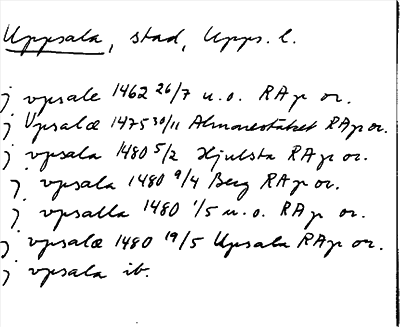 Uppsala, stad, Upps. l.
j vpsale 1462 26/7 u.o. RAp or.
j Vpsalæ 1475 30/11 Almarestäket RAp or.
j vpsala 1480 5/2 Hjulsta RAp or.
j vpsala 1480 9/4 Berg RAp or.
j vpsalla 1480 1/5 u.o. RAp or.
j vpsalæ 1480 19/5 Uppsala RAp or.
j vpsala ib.